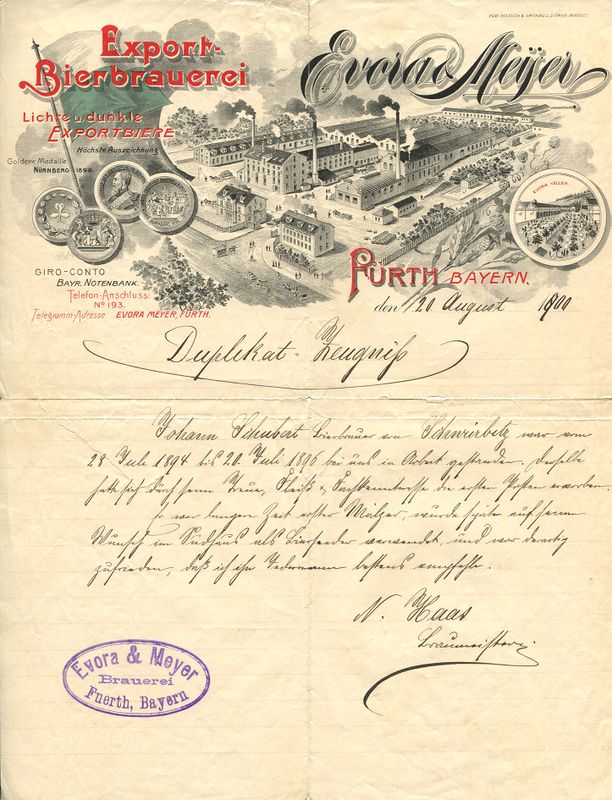 RUD. HOESCH & ORTHAUS, DÜREN (RHEINL.)
Export-
Bierbrauerei
Evora & Meyer
Lichte u. dunkle
EXPORTBIERE
Höchste Auszeichnung
Goldene Medaille
NÜRNBERG 1896.
EVORA KELLER
GIRO-CONTO
BAYR. NOTENBANK.
Telefon-Anschluss:
No 193.
Telegramm-Adresse EVORA MEYER, FÜRTH.
FÜRTH BAYERN,
den 20. August 1900
Duplikat-Zeugniß
Johann Schubert Bierbrauer von war vom
28 Juli 1894 bis 20. Juli 1896 bei uns in Arbeit gestanden. Derselbe
hatte sich durch seine Treue, Fleiß & Fachkenntnisse die ersten Posten erworben.
Er war lange Zeit erster Mälzer, wurde später auf seinen
Wunsch im Sudhaus als Biersieder verwendet, und war derartig
zufrieden, daß ich ihn Jedermann bestens empfehle.
N. Haas
Braumeister
Evora & Meyer
Brauerei
Fuerth, Bayern